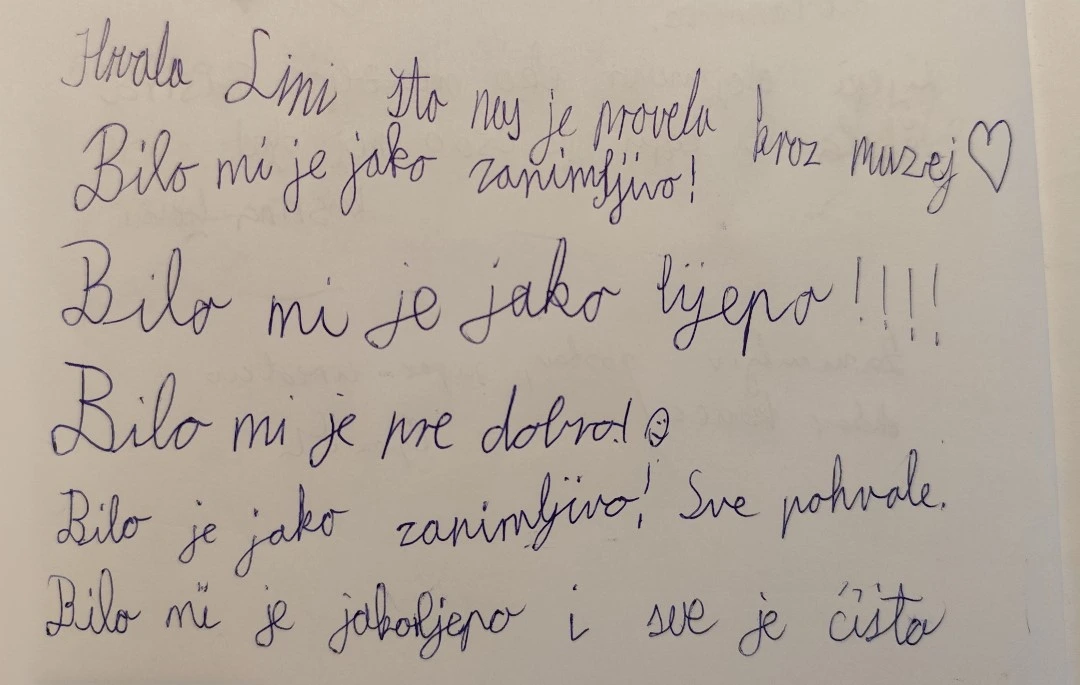 Hvala Lini što nas je provela kroz muzej♡
Bilo mi je jako zanimljivo!
Bilo mi je jako lijepo!!!!
Bilo mi je pre dobro!☺
Bilo je jako zanimljivo! Sve pohvale.
Bilo mi je jako ljepo i sve je čisto